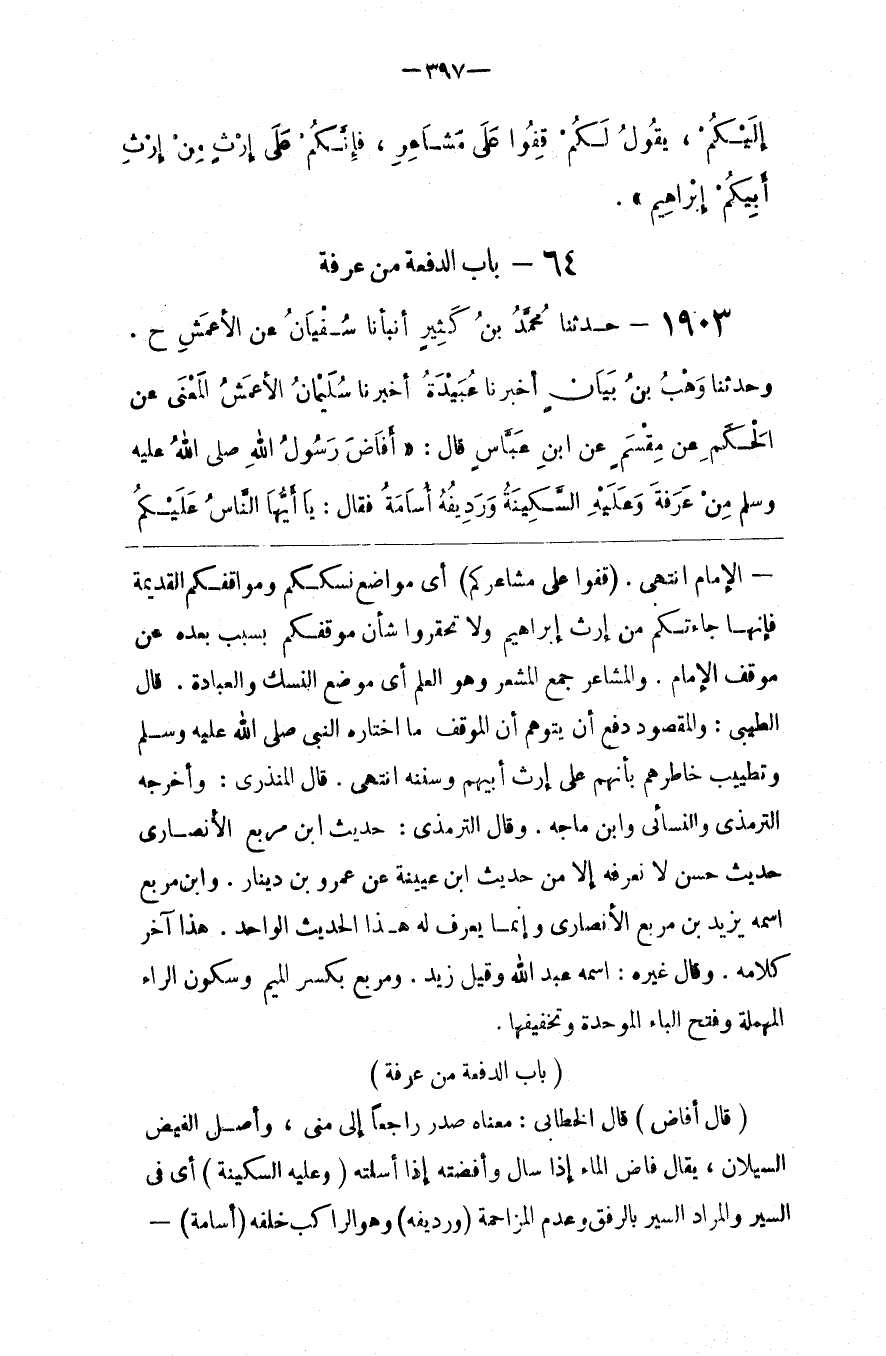 —٣٩٧—
إِلَيْكُمْ ، يقُولُ لَكُمْ قِفُوا عَلَى مَشَاعِرِ ، فَإِنَّكُمْ عَلَى إِرْثٍ مِنْ إِرْثِ
أَبِيكُمْ إِبْرَاهِيم » .
٦٤ — باب الدفعة من عرفة
١٩٠٣ — حدثنا مُحَمَّدُ بنُ كَثِيرٍ أنبأنا سُفْيَانُ عن الأعمَشِ ح .
وحدثنا وَهْبُ بنُ بَيَانٍ أخبرنا عُبَيْدَةُ أخبرنا سُلَيْمَانُ الأعمَشُ المَعْنَى عن
الْحَكَمِ عن مِقْسَمٍ عن ابنِ عَبَّاسٍ قال : « أَفَاضَ رَسُولُ اللهِ صلى اللهُ عليه
وسلم مِنْ عَرَفَةَ وَعَلَيْهِ السَّكِينَةُ وَرَدِيفُهُ أُسَامَةُ فقال : يا أَيُّهَا النَّاسُ عَلَيْكُمُ
— الإمام انتهى . (قفوا على مشاعركم) أى مواضع نسككم ومواقفكم القديمة
فإنها جاءتكم من إرث إبراهيم ولا تحقروا شأن موقفكم بسبب بعده عن
موقف الإمام . والمشاعر جمع المشعر وهو العلم أى موضع النسك والعبادة . قال
الطيبى : والمقصود دفع أن يتوهم أن الموقف ما اختاره النبى صلى الله عليه وسلم
وتطييب خاطرهم بأنهم على إرث أبيهم وسننه انتهى . قال المنذرى : وأخرجه
الترمذى والنسائى وابن ماجه . وقال الترمذى : حديث ابن مربع الأنصارى
حديث حسن لا نعرفه إلا من حديث ابن عيينة عن عمرو بن دينار . وابن مربع
اسمه يزيد بن مربع الأنصارى وإنما يعرف له هذا الحديث الواحد . هذا آخر
كلامه . وقال غيره : اسمه عبد الله وقيل زيد . ومربع بكسر الميم وسكون الراء
المهملة وفتح الباء الموحدة وتخفيفها .
( باب الدفعة من عرفة )
( قال أفاض ) قال الخطابى : معناه صدر راجعاً إلى منى ، وأصل الفيض
السيلان ، يقال فاض الماء إذا سال وأفضته إذا أسلته ( وعليه السكينة ) أى فى
السير والمراد السير بالرفق وعدم المزاحمة (ورديفه) وهو الراكب خلفه (أسامة) —